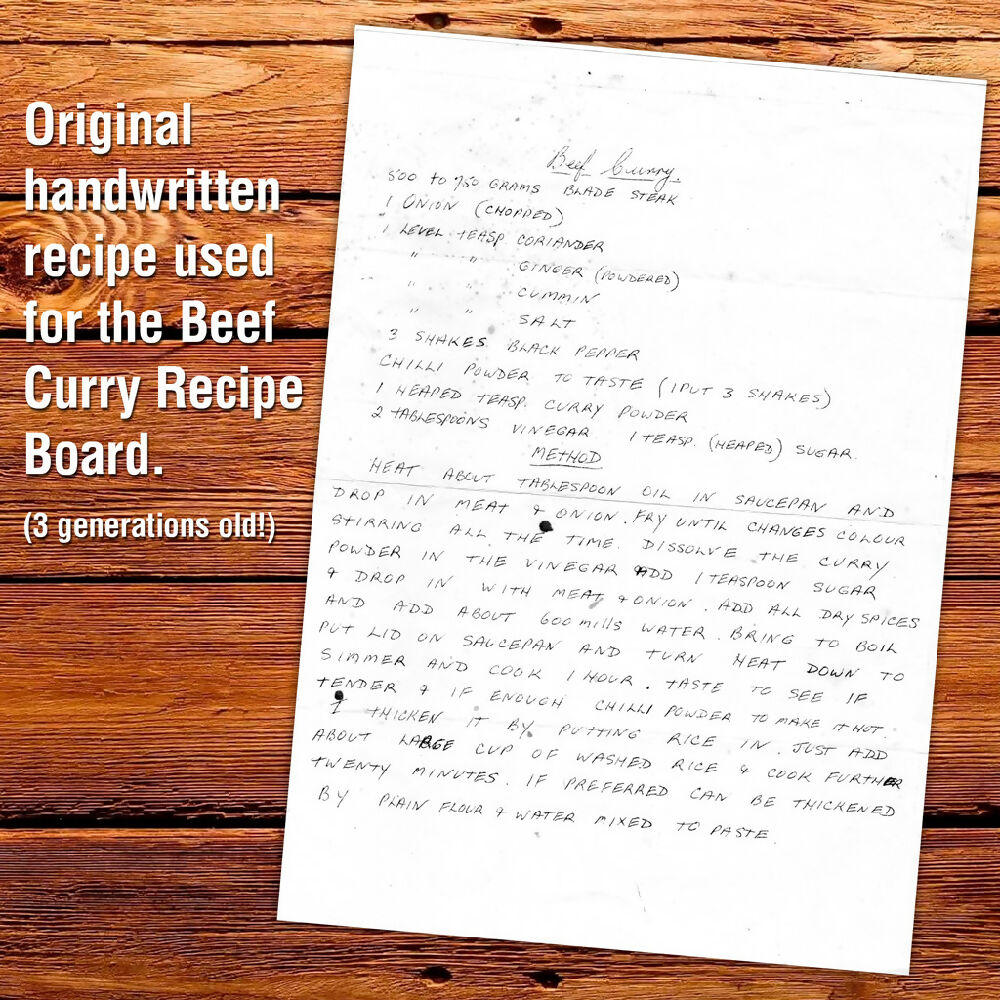 Original
handwritten
recipe used
for the Beef
Curry Recipe
Board.
(3 generations old!)
Beef Curry.
500 TO 750 GRAMS BLADE STEAK
1 ONION (CHOPPED)
1 LEVEL TEASP CORIANDER
" " GINGER (POWDERED)
" " CUMMIN
" " SALT
3 SHAKES BLACK PEPPER
CHILLI POWDER TO TASTE (I PUT 3 SHAKES)
1 HEAPED TEASP. CURRY POWDER
2 TABLESPOONS VINEGAR 1 TEASP. (HEAPED) SUGAR.
METHOD
HEAT ABOUT TABLESPOON OIL IN SAUCEPAN AND
DROP IN MEAT & ONION. FRY UNTIL CHANGES COLOUR
STIRRING ALL THE TIME. DISSOLVE THE CURRY
POWDER IN THE VINEGAR ADD 1 TEASPOON SUGAR
& DROP IN WITH MEAT & ONION. ADD ALL DRY SPICES
AND ADD ABOUT 600 mills WATER. BRING TO BOIL
PUT LID ON SAUCEPAN AND TURN HEAT DOWN TO
SIMMER AND COOK 1 HOUR. TASTE TO SEE IF
TENDER & IF ENOUGH CHILLI POWDER TO MAKE IT HOT.
I THICKEN IT BY PUTTING RICE IN. JUST ADD
ABOUT LARGE CUP OF WASHED RICE & COOK FURTHER
TWENTY MINUTES. IF PREFERRED CAN BE THICKENED
BY PLAIN FLOUR & WATER MIXED TO PASTE.